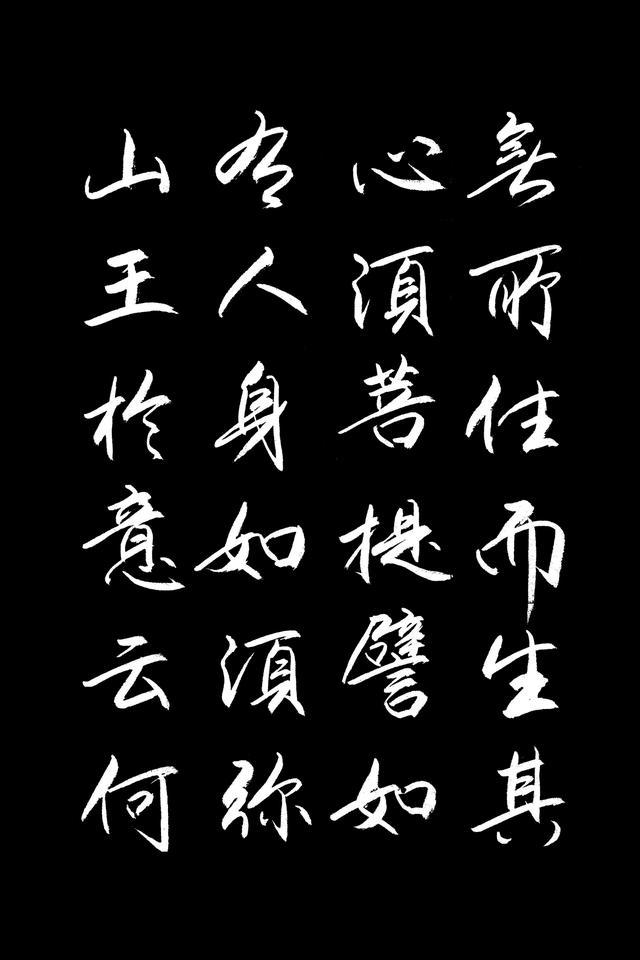 無所住而生其
心須菩提譬如
有人身如須弥
山王於意云何